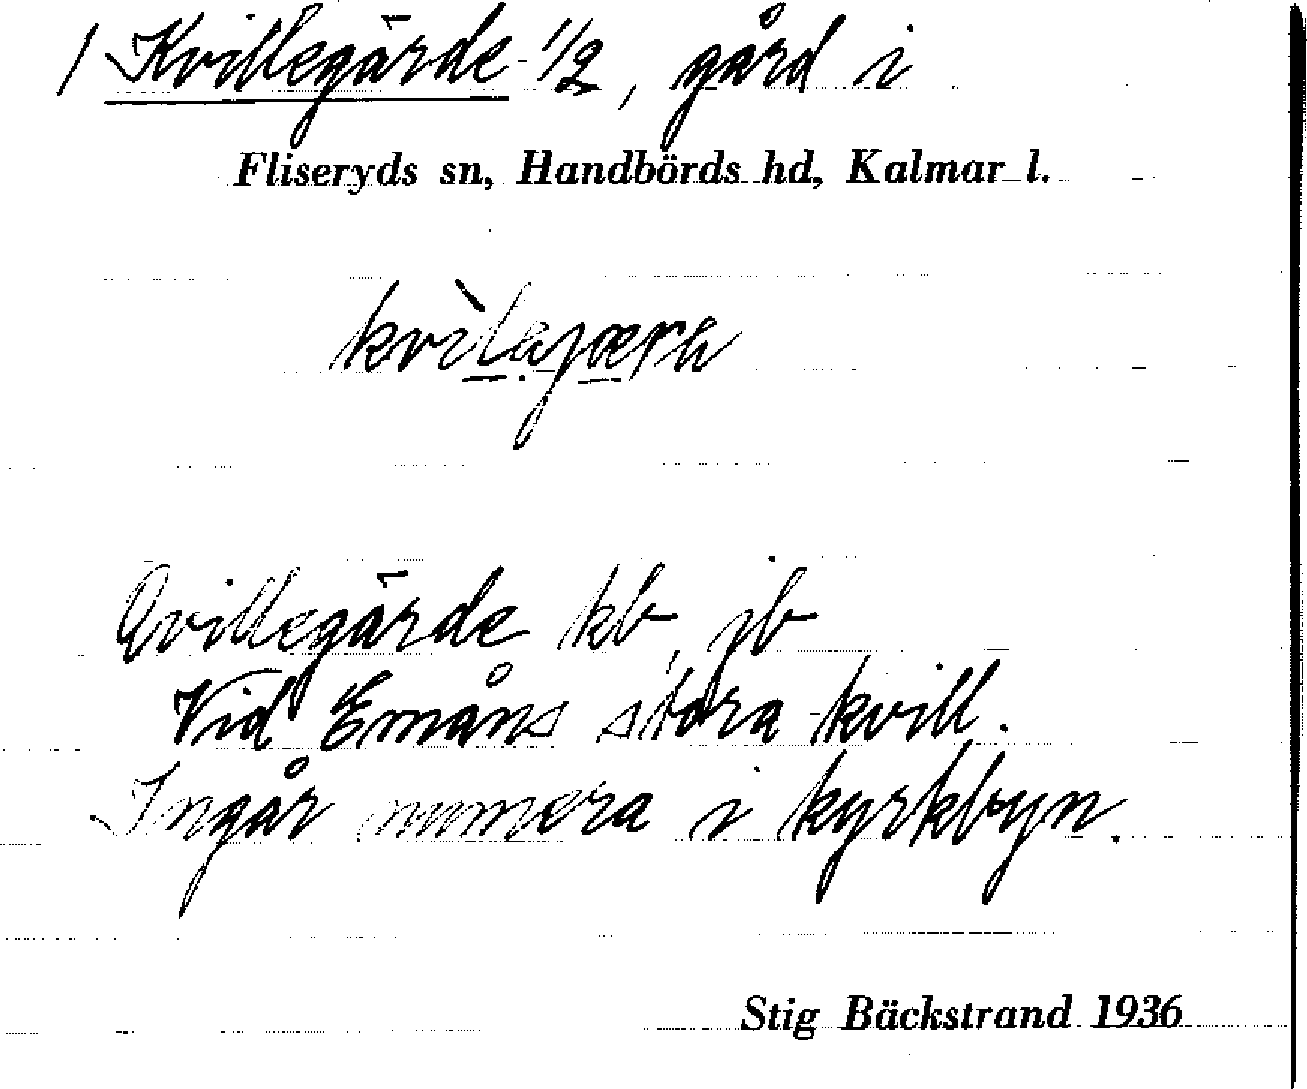 / Kvillegärde 1/2, gård i
Fliseryds sn, Handbörds hd, Kalmar l.
Qvillegärde kb, jb
Vid Emåns stora kvill.
Ingår numera i kyrkbyn.
Stig Bäckstrand 1936